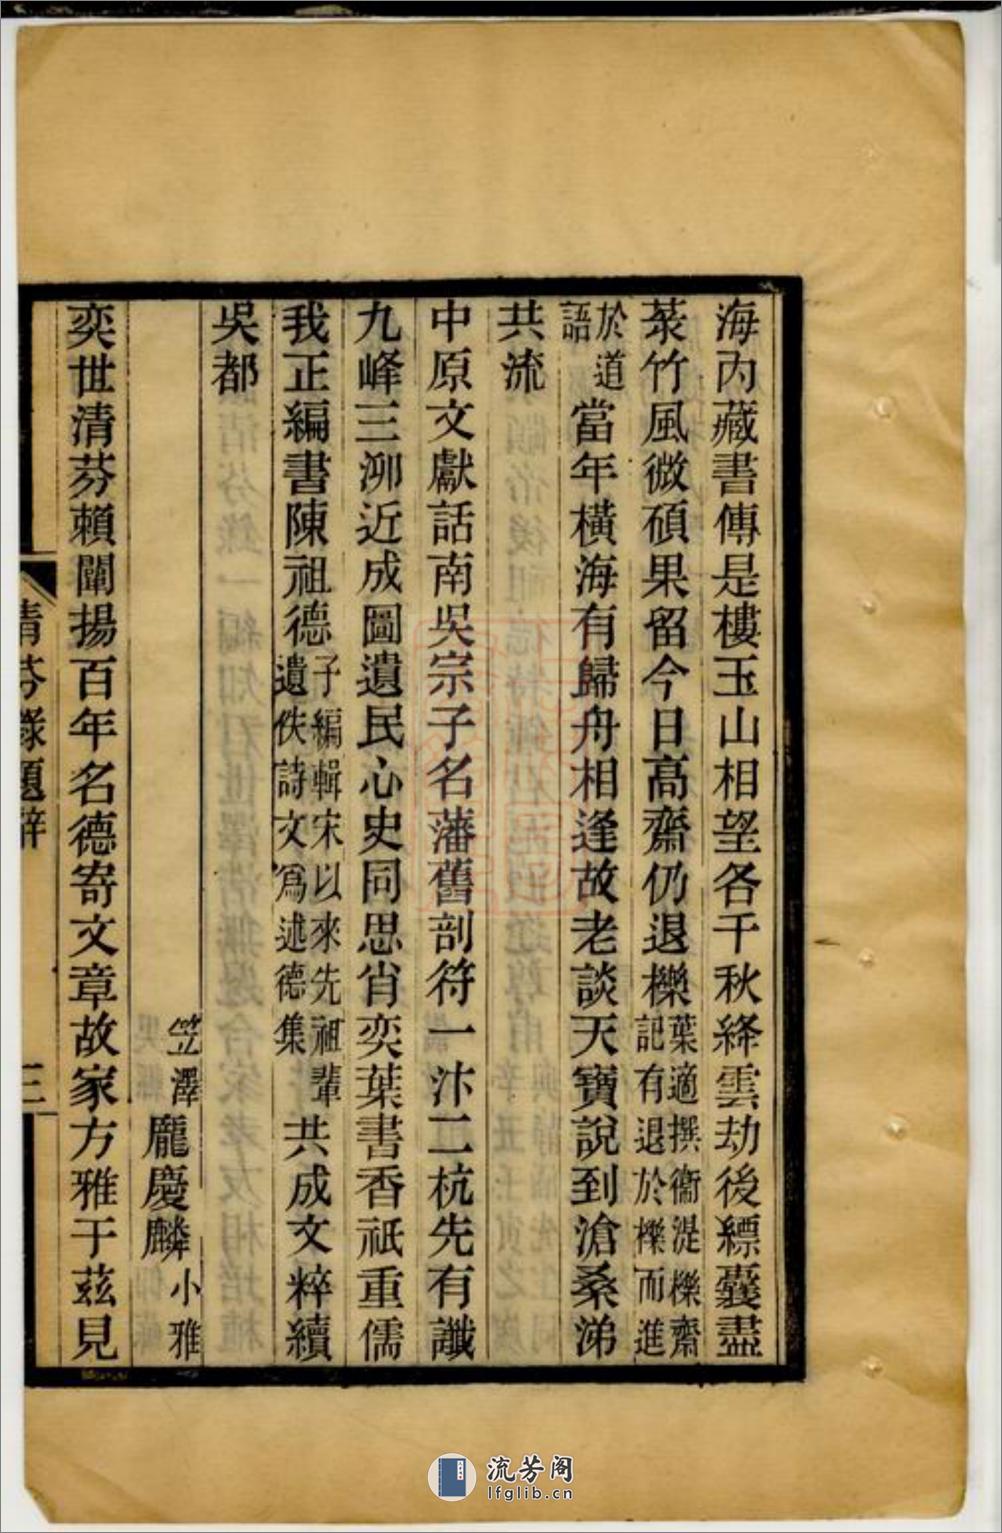 海內藏書傳是樓玉山相望各千秋絳雲劫後縹囊盡
菉竹風微碩果留今日高齋仍退櫟葉適撰衞湜櫟齋記有退於櫟而進
於道語當年橫海有歸舟相逢故老談天寶說到滄桑涕
共流
中原文獻話南吳宗子名藩舊剖符一汴二杭先有讖
九峰三泖近成圖遺民心史同思肖奕葉書香祇重儒
我正編書陳祖德子編輯宋以來先祖輩遺佚詩文爲述德集共成文粹續
吳都
笠澤龐慶麟小雅
奕世清芬賴闡揚百年名德寄文章故家方雅于茲見
清芬錄題辭
三
流芳阁
lfglib.cn